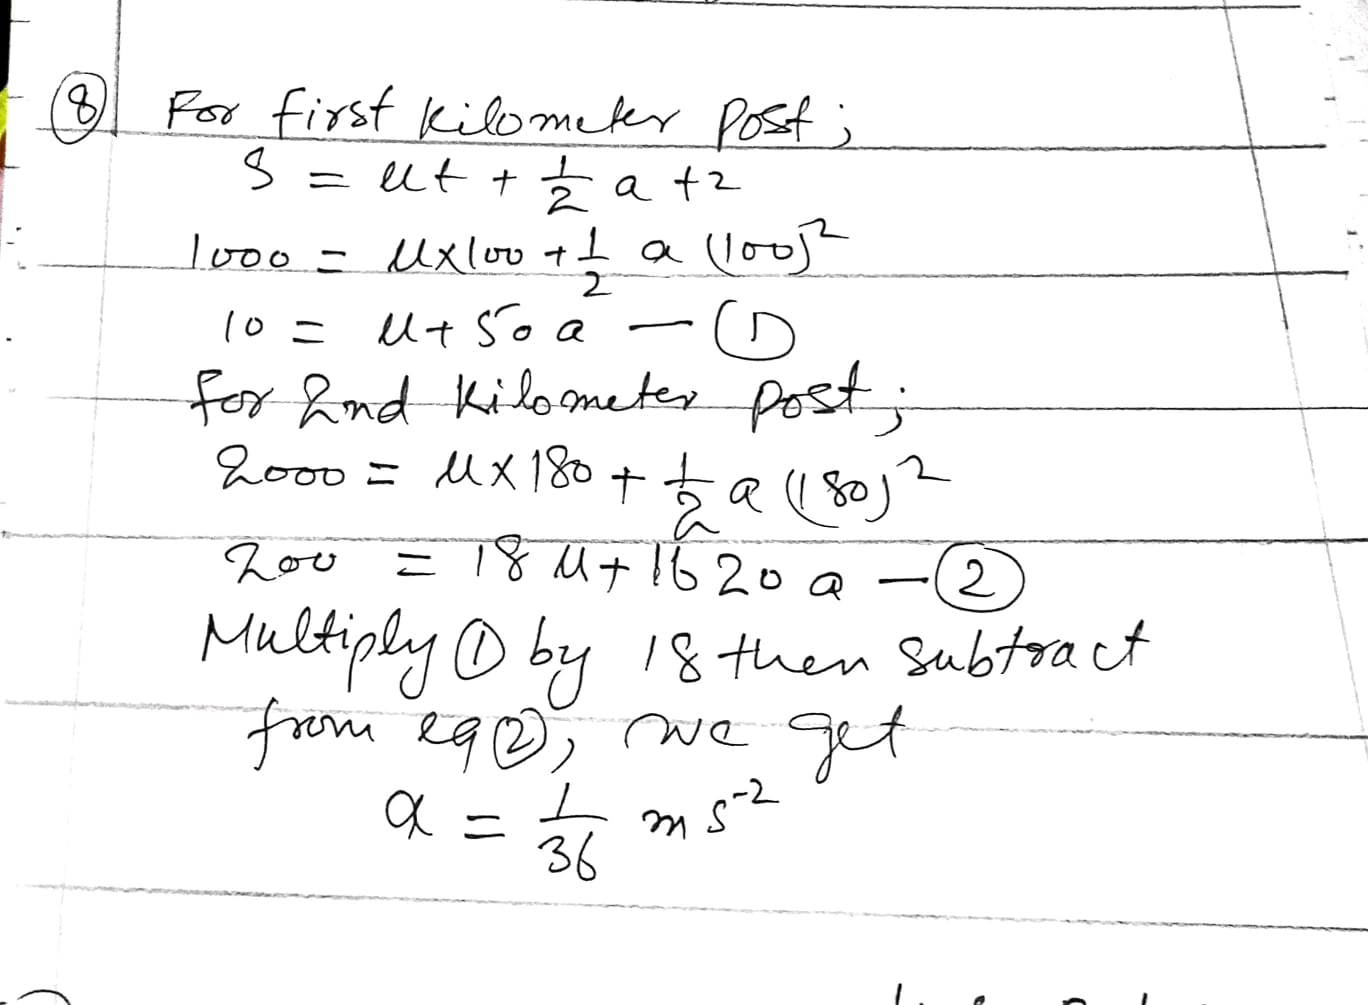 ⑧ For first kilometer post;
S = ut + 1/2 a t2
1000 = u×100 + 1/2 a (100)²
10 = u + 50 a — ①
for 2nd kilometer post;
2000 = u×180 + 1/2 a (180)²
200 = 18 u + 1620 a — ②
Multiply ① by 18 then subtract
from eq ②, we get
a = 1/36 m s⁻²